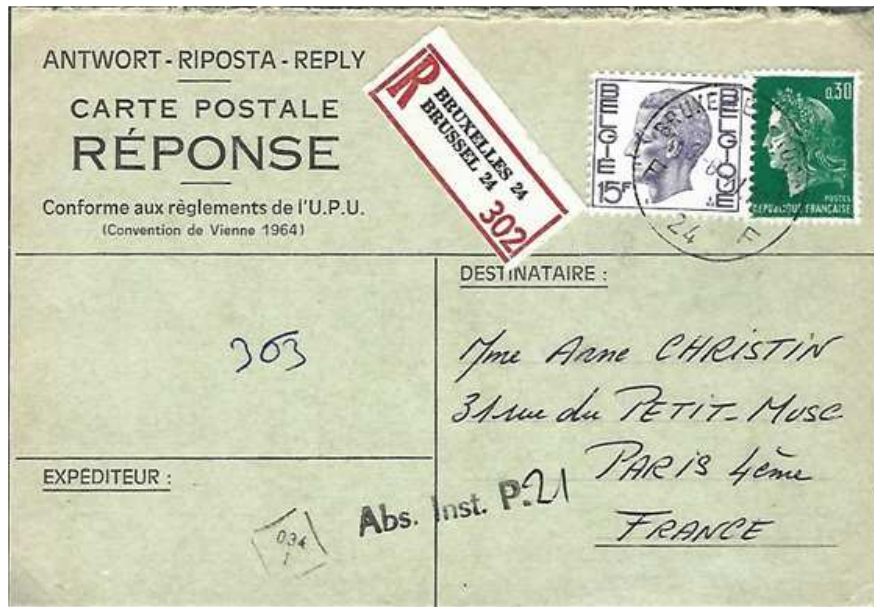 ANTWORT - RIPOSTA - REPLY
CARTE POSTALE
RÉPONSE
Conforme aux règlements de l'U.P.U.
(Convention de Vienne 1964)
R
BRUXELLES 24
BRUSSEL 24
302
BELGIE
15F
BELGIQUE
0,30
POSTES
REPUBLIQUE FRANÇAISE
24 F
DESTINATAIRE :
Mme Anne CHRISTIN
31 rue du PETIT-MUSC
PARIS 4ème
FRANCE
303
EXPÉDITEUR :
Abs. Inst. P.21